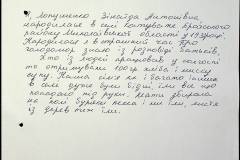 Я, Лопушенко Зінаїда Антонівна,
народилася в селі Катеринка Кривоозерського
району Миколаївської області у 1937 році.
Народилася я в страшний час. Про
голодомор знаю із розповіді батьків.
Хто із людей працював у колгоспі
то отримували 100 гр хліба і миску
супу. Наша сім'я як і багато інших
в селі дуже були бідні, їли все що
попадало під руки. Мати
на полі буряки
із дерев теж їли.